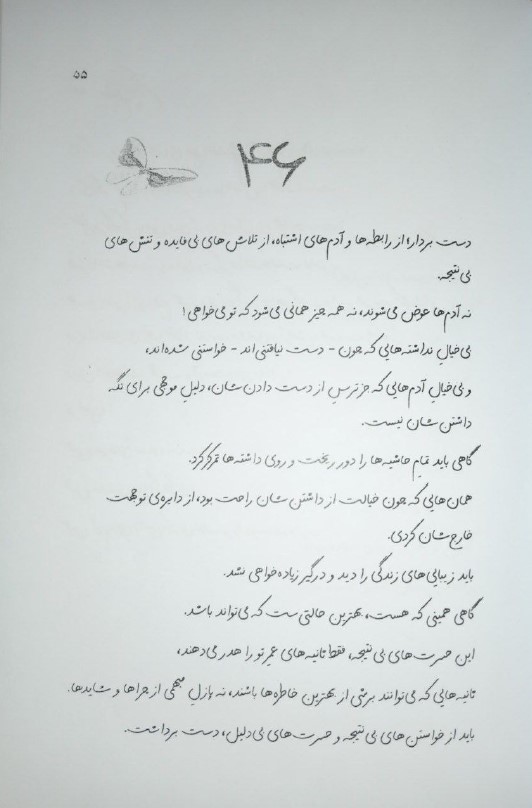 ۵۵
۴۶
دست بردار؛ از رابطه‌ها و آدم‌های اشتباه، از تلاش‌های بی‌فایده و تنش‌های
بی‌نتیجه.
نه آدم‌ها عوض می‌شوند، نه همه چیز همانی می‌شود که تو می‌خواهی!
بی‌خیالِ نداشته‌هایی که چون - دست نیافتنی‌اند - خواستنی شده‌اند،
و بی‌خیالِ آدم‌هایی که جز ترسِ از دست دادن‌شان، دلیلِ موجهی برای نگه
داشتن‌شان نیست.
گاهی باید تمامِ حاشیه‌ها را دور ریخت و روی داشته‌ها تمرکز کرد.
همان‌هایی که چون خیالت از داشتن‌شان راحت بود، از دایره‌ی توجهت
خارج‌شان کردی.
باید زیبایی‌های زندگی را دید و درگیرِ زیاده‌خواهی نشد.
گاهی همینی که هست، بهترین حالتی‌ست که می‌تواند باشد.
این حسرت‌های بی‌نتیجه، فقط ثانیه‌های عمرِ تو را هدر می‌دهند،
ثانیه‌هایی که می‌توانند برشی از بهترین خاطره‌ها باشند، نه پازلِ مبهمی از چراها و شایدها.
باید از خواستن‌های بی‌نتیجه و حسرت‌های بی‌دلیل، دست برداشت.